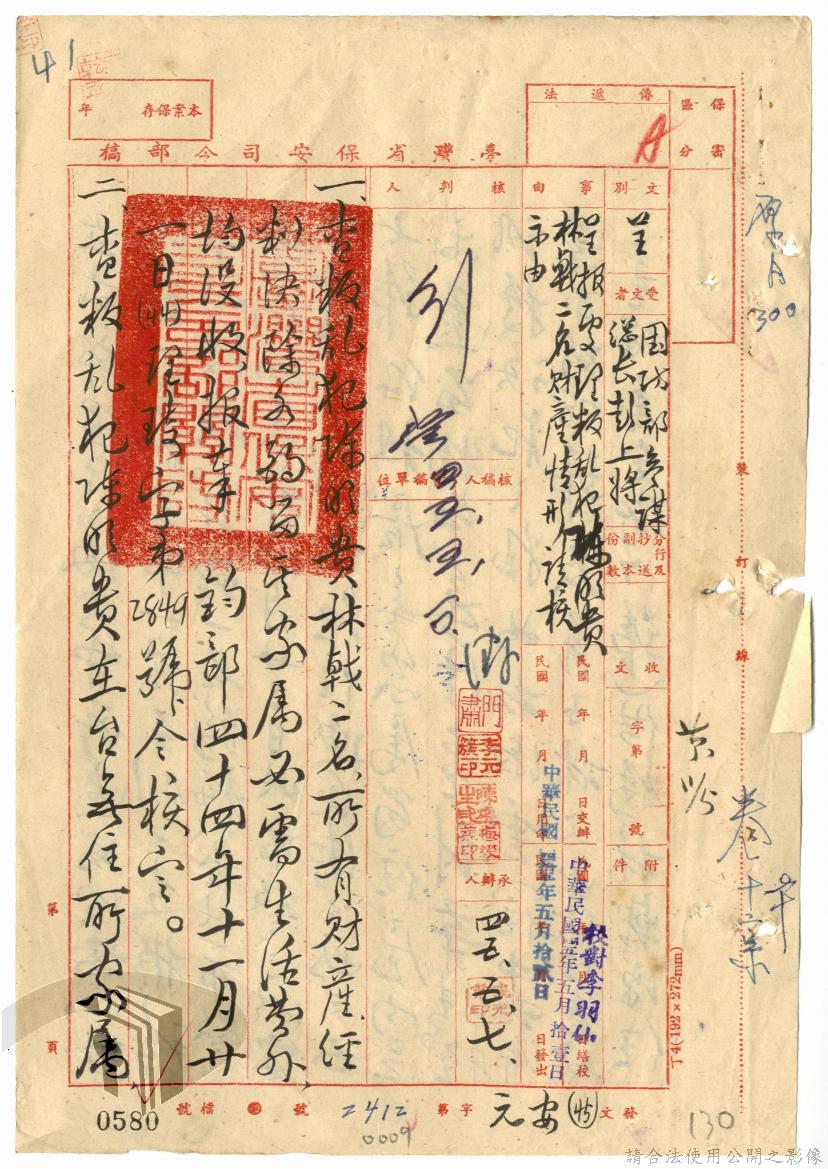 41
本案保存 年
傳遞法
保密區分
臺灣省保安司令部稿
文別
呈
受文者
國防部參謀
總長彭上將
分行及抄送副本份數
收文 字第 號
附件
事由
呈报處理叛乱犯陳明貴
林戟二名財產情形請核
示由
核判人
核稿人
稿單位
承辦人
四五、五、七、
民國 年 月 日交辦
民國 年 月 日繕校
日發出
中華民國
年五月拾壹日
年五月拾貳日
校對李羽仙
一、查叛乱犯陳明貴林戟二名、所有財產、經
判決除各酌留其家属必需生活费外、
均没收、报奉 鈞部四十四年十一月廿
一日 理璇字第2849號令核定。
二、查叛乱犯陳明貴在台無住所家属、
裝訂線
原月300
卷十宗
第 頁
丁4(192×272mm)
發文 (45) 安元 字第 2412 號
0009
檔號
0580
130
請合法使用公開之影像